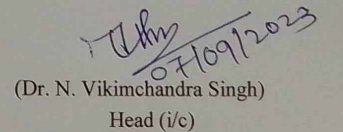 07/09/2023
(Dr. N. Vikimchandra Singh)
Head (i/c)